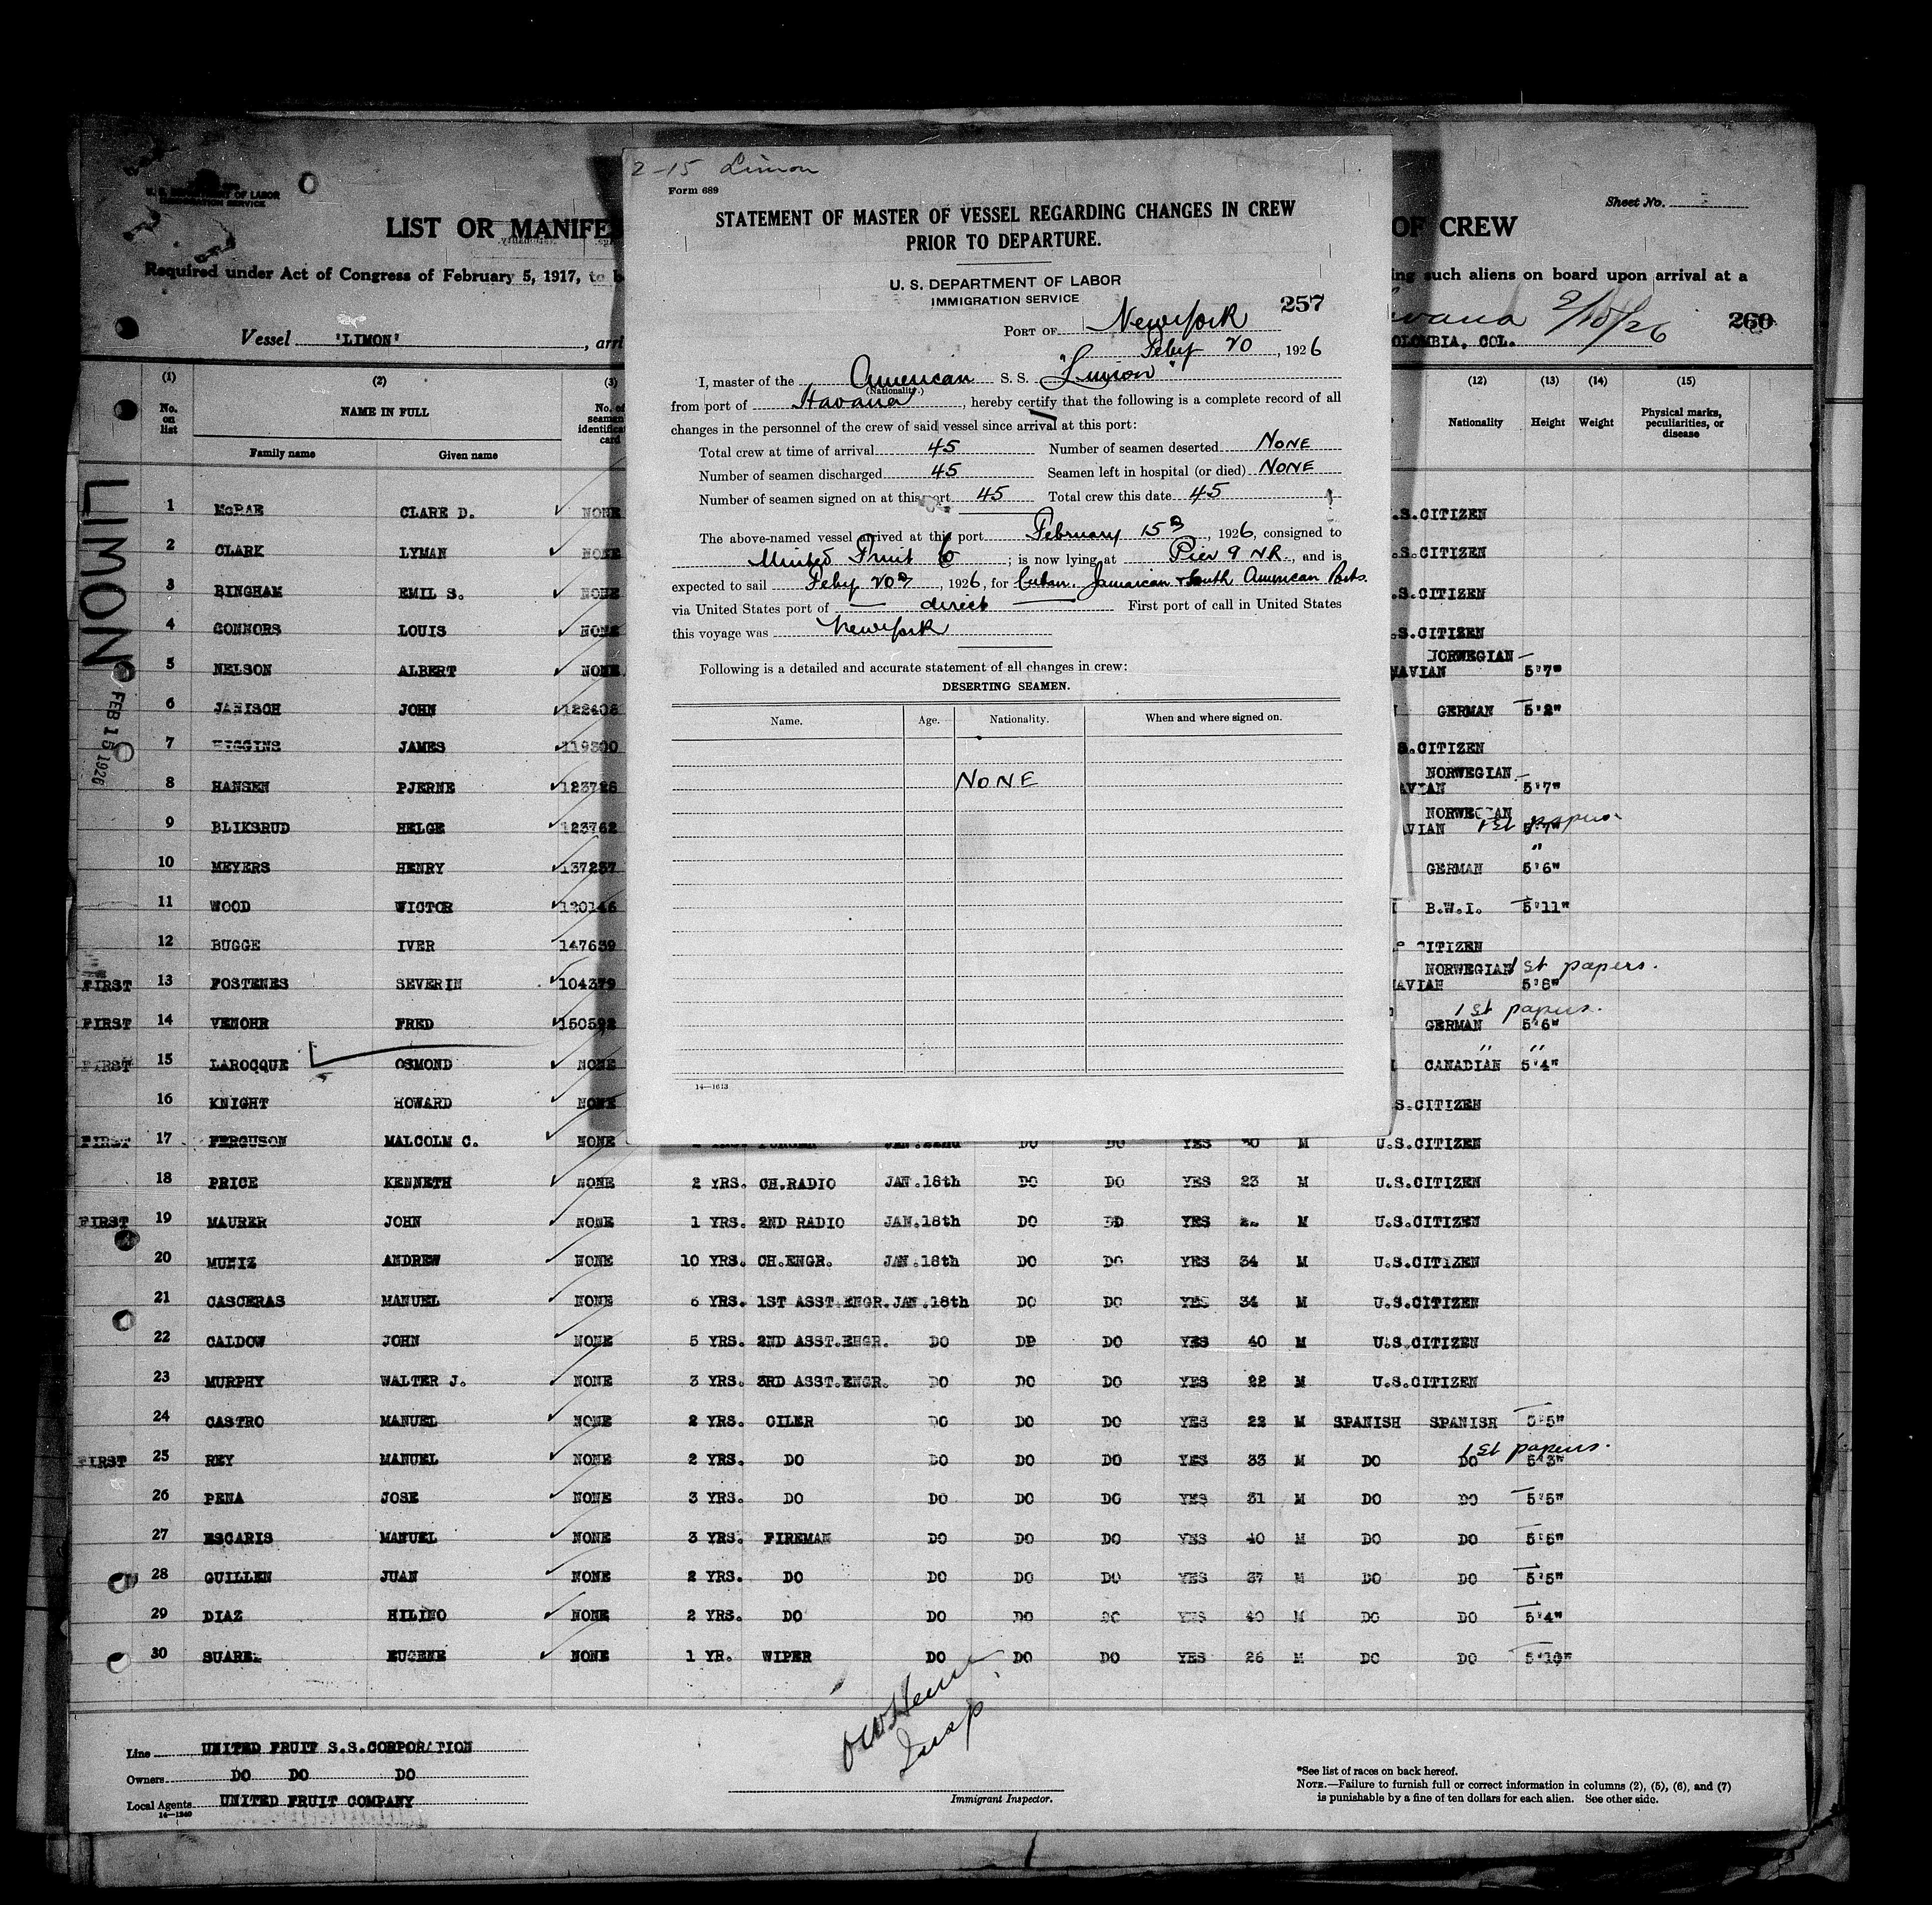 2-15 Limon
Form 689
STATEMENT OF MASTER OF VESSEL REGARDING CHANGES IN CREW
PRIOR TO DEPARTURE.
U. S. DEPARTMENT OF LABOR
IMMIGRATION SERVICE
257
PORT OF New York
Feby 20, 1926
I, master of the American S. S. "Limon"
(Nationality.)
from port of Havana, hereby certify that the following is a complete record of all
changes in the personnel of the crew of said vessel since arrival at this port:
Total crew at time of arrival 45 Number of seamen deserted NONE
Number of seamen discharged 45 Seamen left in hospital (or died) NONE
Number of seamen signed on at this port 45 Total crew this date 45
The above-named vessel arrived at this port February 15th, 1926, consigned to
United Fruit Co; is now lying at Pier 9 N.R., and is
expected to sail Feby 20th, 1926, for Cuban. Jamaican & South American Ports.
via United States port of — direct — First port of call in United States
this voyage was New York
Following is a detailed and accurate statement of all changes in crew:
DESERTING SEAMEN.
Name. Age. Nationality. When and where signed on.
NONE
14—1613
U. S. DEPARTMENT OF LABOR
IMMIGRATION SERVICE
Sheet No.
LIST OR MANIFE OF CREW
Required under Act of Congress of February 5, 1917, to b ing such aliens on board upon arrival at a
Vessel 'LIMON', arri
2/15/26
260
OLOMBIA, COL.
(1) (2) (3) (12) (13) (14) (15)
No. on list NAME IN FULL No. of seaman identificat card Nationality Height Weight Physical marks, peculiarities, or disease
Family name Given name
LIMON
FEB 15 1926
1 McRAE CLARE D. NONE .S.CITIZEN
2 CLARK LYMAN NONE .S.CITIZEN
3 BINGHAM EMIL S. NONE .S.CITIZEN
4 CONNORS LOUIS NONE .S.CITIZEN
5 NELSON ALBERT NONE NAVIAN NORWEGIAN 5'7"
6 JANISCH JOHN 122408 GERMAN 5'2"
7 HIGGINS JAMES 119300 S.CITIZEN
8 HANSEN PJERNE 123728 AVIAN NORWEGIAN 5'7"
9 BLIKSRUD HELGE 123762 AVIAN NORWEGIAN 5'7" 1st papers
10 MEYERS HENRY 137237 GERMAN 5'6"
11 WOOD WICTOR 120146 B.W.I. 5'11"
12 BUGGE IVER 147639 CITIZEN
FIRST 13 FOSTENES SEVERIN 104379 AVIAN NORWEGIAN 5'8" 1st papers.
FIRST 14 VENOHR FRED 150592 GERMAN 5'6" 1st papers.
FIRST 15 LAROCQUE OSMOND NONE CANADIAN 5'4" " "
16 KNIGHT HOWARD NONE S.CITIZEN
FIRST 17 FERGUSON MALCOLM C. NONE JAN.22nd DO DO YES 30 M U.S.CITIZEN
18 PRICE KENNETH NONE 2 YRS. CH.RADIO JAN.18th DO DO YES 23 M U.S.CITIZEN
FIRST 19 MAURER JOHN NONE 1 YRS. 2ND RADIO JAN.18th DO DO YES M U.S.CITIZEN
20 MUNIZ ANDREW NONE 10 YRS. CH.ENGR. JAN.18th DO DO YES 34 M U.S.CITIZEN
21 CASCERAS MANUEL NONE 6 YRS. 1ST ASST.ENGR. JAN.18th DO DO YES 34 M U.S.CITIZEN
22 CALDOW JOHN NONE 5 YRS. 2ND ASST.ENGR. DO DP DO YES 40 M U.S.CITIZEN
23 MURPHY WALTER J. NONE 3 YRS. 3RD ASST.ENGR. DO DO DO YES 22 M U.S.CITIZEN
24 CASTRO MANUEL NONE 2 YRS. OILER DO DO DO YES 22 M SPANISH SPANISH 5'5"
FIRST 25 REY MANUEL NONE 2 YRS. DO DO DO DO YES 33 M DO DO 5'3" 1st papers.
26 PENA JOSE NONE 3 YRS. DO DO DO DO YES 31 M DO DO 5'5"
27 ESCARIS MANUEL NONE 3 YRS. FIREMAN DO DO DO YES 40 M DO DO 5'5"
28 GUILLEN JUAN NONE 2 YRS. DO DO DO DO YES 37 M DO DO 5'5"
29 DIAZ HILINO NONE 2 YRS. DO DO DO DO YES 40 M DO DO 5'4"
30 SUAREZ EUGENE NONE 1 YR. WIPER DO DO DO YES 26 M DO DO 5'10"
Insp.
Line UNITED FRUIT S.S.CORPORATION
Owners DO DO DO
Local Agents UNITED FRUIT COMPANY
14—1240
Immigrant Inspector.
*See list of races on back hereof.
NOTE.—Failure to furnish full or correct information in columns (2), (5), (6), and (7)
is punishable by a fine of ten dollars for each alien. See other side.